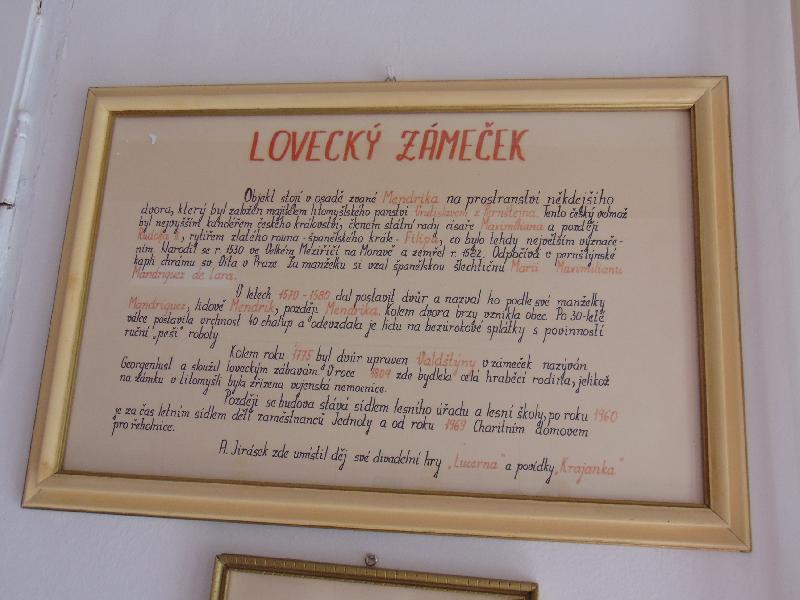 LOVECKÝ ZÁMEČEK
Objekt stojí v osadě zvané Mendrika na prostranství někdejšího
dvora, který byl založen majitelem litomyšlského panství Vratislavem z Pernštejna. Tento český velmož
byl nejvyšším kancléřem českého království, členem státní rady císaře Maxmiliana a později
Rudolfa II., rytířem zlatého rouna - španělského krále - Filipa, co bylo tehdy největším vyzname-
ním. Narodil se r. 1530 ve Velkém Meziříčí na Moravě a zemřel r. 1582. Odpočívá v pernštýnské
kapli chrámu sv. Víta v Praze. Za manželku si vzal španělskou šlechtičnu Marii Maxmilianu
Mandriguez de Lara.
V letech 1570 - 1580 dal postavit dvůr a nazval ho podle své manželky
Mandriguez, lidově Mendrik, později Mendrika. Kolem dvora brzy vznikla obec. Po 30-leté
válce postavila vrchnost 40 chalup a odevzdala je lidu na bezúrokové splátky s povinností
ruční „pěší“ roboty.
Kolem roku 1775 byl dvůr upraven Valdštýny v zámeček nazýván
Georgenhest a sloužil loveckým zábavám. V roce 1809 zde bydlela celá hraběcí rodina, jelikož
na zámku v Litomyšli byla zřízena vojenská nemocnice.
Později se budova stává sídlem lesního úřadu a lesní školy, po roku 1960
je za čas letním sídlem dětí zaměstnanců Jednoty a od roku 1969 Charitním domovem
pro řeholnice.
A. Jirásek zde umístil děj své divadelní hry „Lucerna“ a povídky „Krajanka“